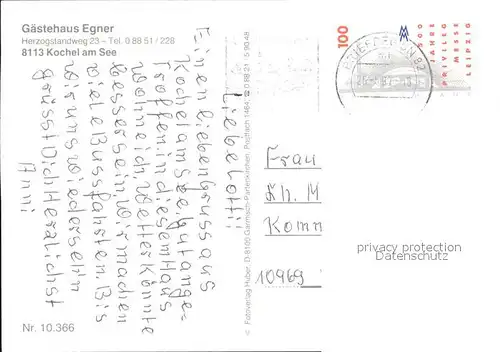 Gästehaus Egner
Herzogstandweg 23 – Tel. 0 88 51 / 228
8113 Kochel am See
Liebe Lotti!
Einen lieben Gruss aus
Kochel am See. gut ange-
troffen. in diesem Haus
wohne ich, Wetter könnte
besser sein wir machen
viele Bussfahrten. Bis
wir uns wiedersehn
grüsst Dich Herzlichst
Anni
Nr. 10.366
© Fotoverlag Huber D-8100 Garmisch-Partenkirchen, Postfach 1464, 0 88 21 - 5 90 48
100
500
JAHRE
PRIVILEG
MESSE
LEIPZIG
Frau
Kh. M
Komm
10969
privacy protection
Datenschutz